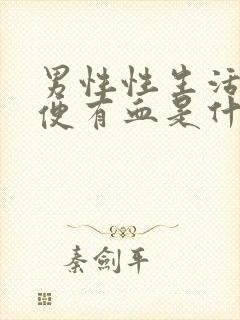 男性性生活
便有血是什
秦剑平